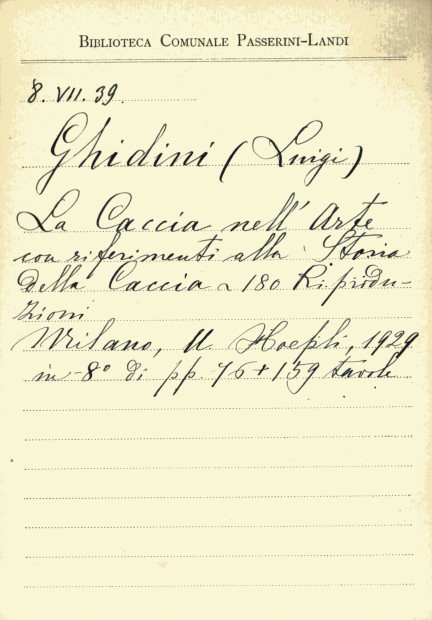 BIBLIOTECA COMUNALE PASSERINI-LANDI
8. VII. 39.
Ghidini (Luigi)
La Caccia nell' Arte
con riferimenti alla Storia
della Caccia 180 Riprodu-
zioni
Milano, U. Hoepli, 1929
in-8° di pp. 76 + 159 tavole